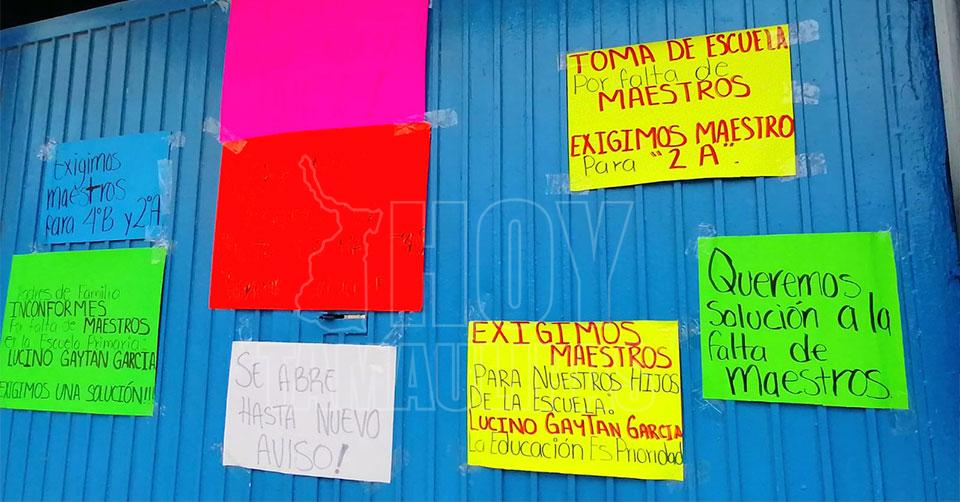 Exigimos
maestros
para 4°B y 2°A
Padres de Familia
INCONFORMES
Por falta de MAESTROS
en la Escuela Primaria
LUCINO GAYTAN GARCIA
EXIGIMOS UNA SOLUCIÓN!!!
SE ABRE
HASTA NUEVO
AVISO!
TOMA DE ESCUELA
Por falta de
MAESTROS
EXIGIMOS MAESTRO
Para "2 A".
EXIGIMOS
MAESTROS
PARA NUESTROS HIJOS
DE LA ESCUELA:
LUCINO GAYTAN GARCIA
La Educación Es Prioridad
Queremos
solución a la
falta de
maestros.
HOY
TAMAULIPAS